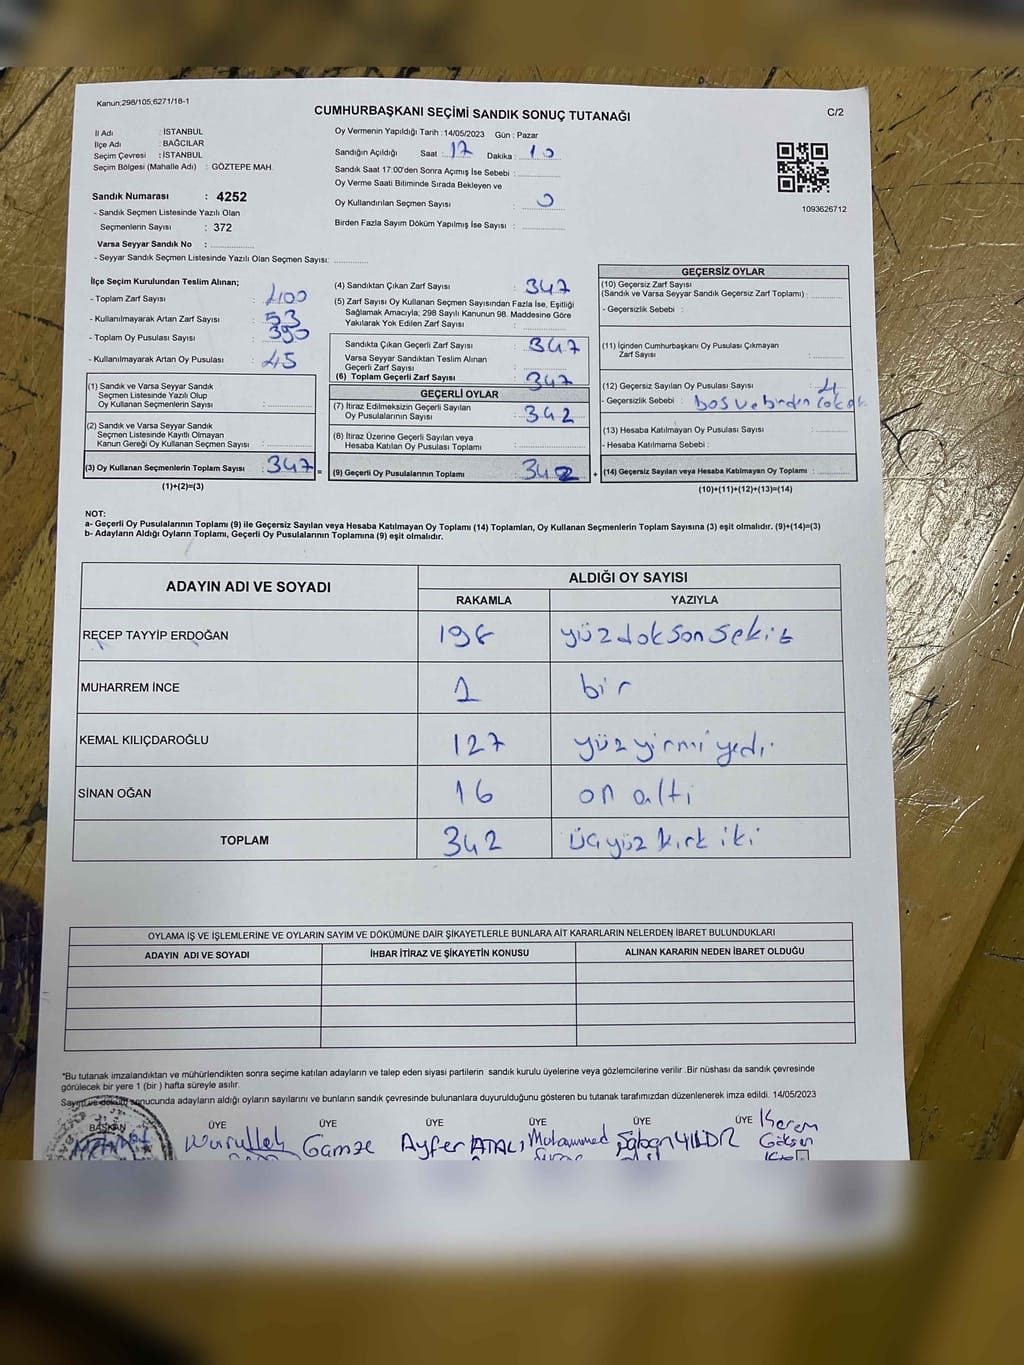 Kanun,298/105;6271/18-1
CUMHURBAŞKANI SEÇİMİ SANDIK SONUÇ TUTANAĞI
C/2
İl Adı : İSTANBUL
İlçe Adı : BAĞCILAR
Seçim Çevresi : İSTANBUL
Seçim Bölgesi (Mahalle Adı) : GÖZTEPE MAH.
Sandık Numarası : 4252
- Sandık Seçmen Listesinde Yazılı Olan
Seçmenlerin Sayısı : 372
Varsa Seyyar Sandık No :
- Seyyar Sandık Seçmen Listesinde Yazılı Olan Seçmen Sayısı:
Oy Vermenin Yapıldığı Tarih :14/05/2023 Gün : Pazar
Sandığın Açıldığı Saat : 17 Dakika : 10
Sandık Saat 17:00'den Sonra Açımış İse Sebebi :
Oy Verme Saati Bitiminde Sırada Bekleyen ve
Oy Kullandırılan Seçmen Sayısı : 0
Birden Fazla Sayım Döküm Yapılmış İse Sayısı :
1093626712
İlçe Seçim Kurulundan Teslim Alınan;
- Toplam Zarf Sayısı : 400
- Kullanılmayarak Artan Zarf Sayısı : 53
- Toplam Oy Pusulası Sayısı : 390
- Kullanılmayarak Artan Oy Pusulası : 45
(1) Sandık ve Varsa Seyyar Sandık
Seçmen Listesinde Yazılı Olup
Oy Kullanan Seçmenlerin Sayısı :
(2) Varsa Sandık ve Varsa Seyyar Sandık
Seçmen Listesinde Kayıtlı Olmayan
Kanun Gereği Oy Kullanan Seçmen Sayısı :
(3) Oy Kullanan Seçmenlerin Toplam Sayısı : 347 =
(1)+(2)=(3)
(4) Sandıktan Çıkan Zarf Sayısı : 347
(5) Zarf Sayısı Oy Kullanan Seçmen Sayısından Fazla İse, Eşitliği
Sağlamak Amacıyla; 298 Sayılı Kanunun 98. Maddesine Göre
Yakılarak Yok Edilen Zarf Sayısı :
Sandıkta Çıkan Geçerli Zarf Sayısı : 347
Varsa Seyyar Sandıktan Teslim Alınan
Geçerli Zarf Sayısı :
(6) Toplam Geçerli Zarf Sayısı : 347
GEÇERLİ OYLAR
(7) İtiraz Edilmeksizin Geçerli Sayılan
Oy Pusulalarının Sayısı : 342
(8) İtiraz Üzerine Geçerli Sayılan veya
Hesaba Katılan Oy Pusulası Toplamı :
(9) Geçerli Oy Pusulalarının Toplamı : 342 +
GEÇERSİZ OYLAR
(10) Geçersiz Zarf Sayısı
(Sandık ve Varsa Seyyar Sandık Geçersiz Zarf Toplamı) :
- Geçersizlik Sebebi :
(11) İçinden Cumhurbaşkanı Oy Pusulası Çıkmayan
Zarf Sayısı :
(12) Geçersiz Sayılan Oy Pusulası Sayısı : 4
- Geçersizlik Sebebi : boş ve birden çok
(13) Hesaba Katılmayan Oy Pusulası Sayısı :
- Hesaba Katılmama Sebebi :
(14) Geçersiz Sayılan veya Hesaba Katılmayan Oy Toplamı :
(10)+(11)+(12)+(13)=(14)
NOT:
a- Geçerli Oy Pusulalarının Toplamı (9) ile Geçersiz Sayılan veya Hesaba Katılmayan Oy Toplamı (14) Toplamları, Oy Kullanan Seçmenlerin Toplam Sayısına (3) eşit olmalıdır. (9)+(14)=(3)
b- Adayların Aldığı Oyların Toplamı, Geçerli Oy Pusulalarının Toplamına (9) eşit olmalıdır.
ADAYIN ADI VE SOYADI
ALDIĞI OY SAYISI
RAKAMLA YAZIYLA
RECEP TAYYİP ERDOĞAN 198 yüzdoksansekiz
MUHARREM İNCE 1 bir
KEMAL KILIÇDAROĞLU 127 yüzyirmiyedi
SİNAN OĞAN 16 on altı
TOPLAM 342 üçyüz kırk iki
OYLAMA İŞ VE İŞLEMLERİNE VE OYLARIN SAYIM VE DÖKÜMÜNE DAİR ŞİKAYETLERLE BUNLARA AİT KARARLARIN NELERDEN İBARET BULUNDUKLARI
ADAYIN ADI VE SOYADI İHBAR İTİRAZ VE ŞİKAYETİN KONUSU ALINAN KARARIN NEDEN İBARET OLDUĞU
*Bu tutanak imzalandıktan ve mühürlendikten sonra seçime katılan adayların ve talep eden siyasi partilerin sandık kurulu üyelerine veya gözlemcilerine verilir .Bir nüshası da sandık çevresinde
görülecek bir yere 1 (bir ) hafta süreyle asılır.
Sayım ve döküm sonucunda adayların aldığı oyların sayılarını ve bunların sandık çevresinde bulunanlara duyurulduğunu gösteren bu tutanak tarafımızdan düzenlenerek imza edildi. 14/05/2023
BAŞKAN ÜYE ÜYE ÜYE ÜYE ÜYE ÜYE
Nurullah Gamze Ayfer ATALI Muhammed Şaban YILDIZ Kerem
Göksen